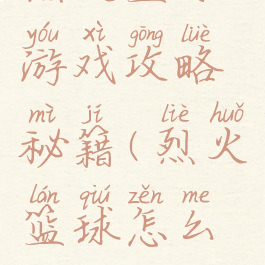 yóu xì gōng lüè
游戏攻略
mì jí liè huǒ
秘籍(烈火
lán qiú zěn me
篮球怎么